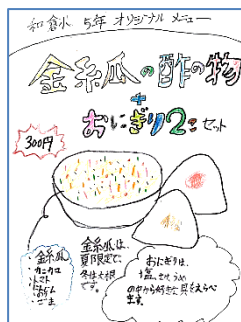 和倉小 5年 オリジナル メニュー
金糸瓜の酢の物
+
おにぎり2こ セット
300円
金糸瓜
・カニカマ
・トマト
・ごま
金糸瓜は、
夏限定で、
冬は大根
です。
おにぎりは、
塩、さけ、うめ
の中から好きな具をえらべ
ます。